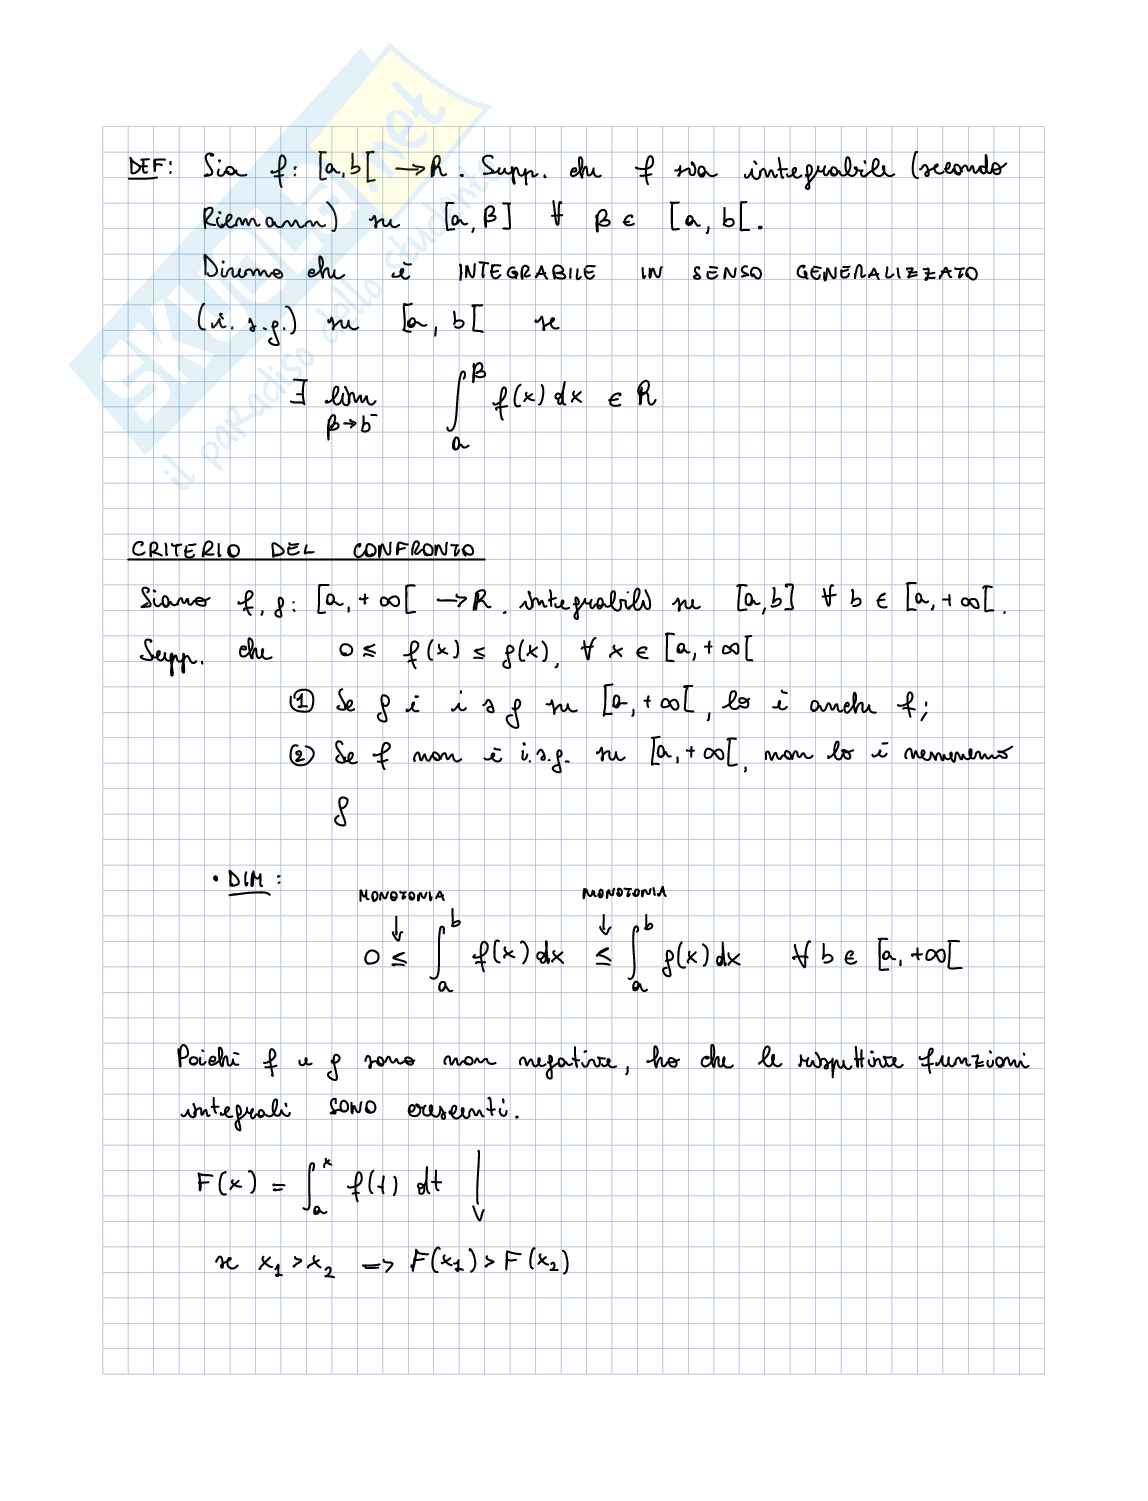 SKUOLA.net
il paradiso dello studente
DEF: Sia f: [a,b[ → R. Supp. che f sia integrabile (secondo
Riemann) su [a, β] ∀ β ∈ [a, b[.
Diremo che è INTEGRABILE IN SENSO GENERALIZZATO
(i. s.g.) su [a, b[ se
∃ lim_{β→b⁻} ∫_a^β f(x) dx ∈ R
CRITERIO DEL CONFRONTO
Siano f, g: [a, +∞[ → R, integrabili su [a,b] ∀ b ∈ [a, +∞[.
Supp. che 0 ≤ f(x) ≤ g(x), ∀ x ∈ [a, +∞[
① Se g è i s g su [a, +∞[, lo è anche f;
② Se f non è i.s.g. su [a, +∞[, non lo è nemmeno
g
• DIM:
MONOTONIA MONOTONIA
↓ ↓
0 ≤ ∫_a^b f(x) dx ≤ ∫_a^b g(x) dx ∀ b ∈ [a, +∞[
Poiché f e g sono non negative, ho che le rispettive funzioni
integrali SONO crescenti.
F(x) = ∫_a^x f(t) dt ↓
se x₁ > x₂ => F(x₁) > F(x₂)